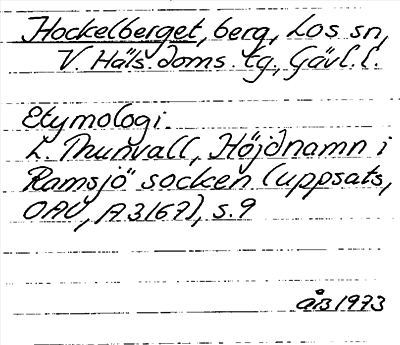 Hockelberget, berg, Los sn,
V. Häls. doms. tg, Gävl. l.
Etymologi.
L. Thunvall, Höjdnamn i
Ramsjö socken (uppsats,
OAU, A 3167), s. 9
ÅB 1973